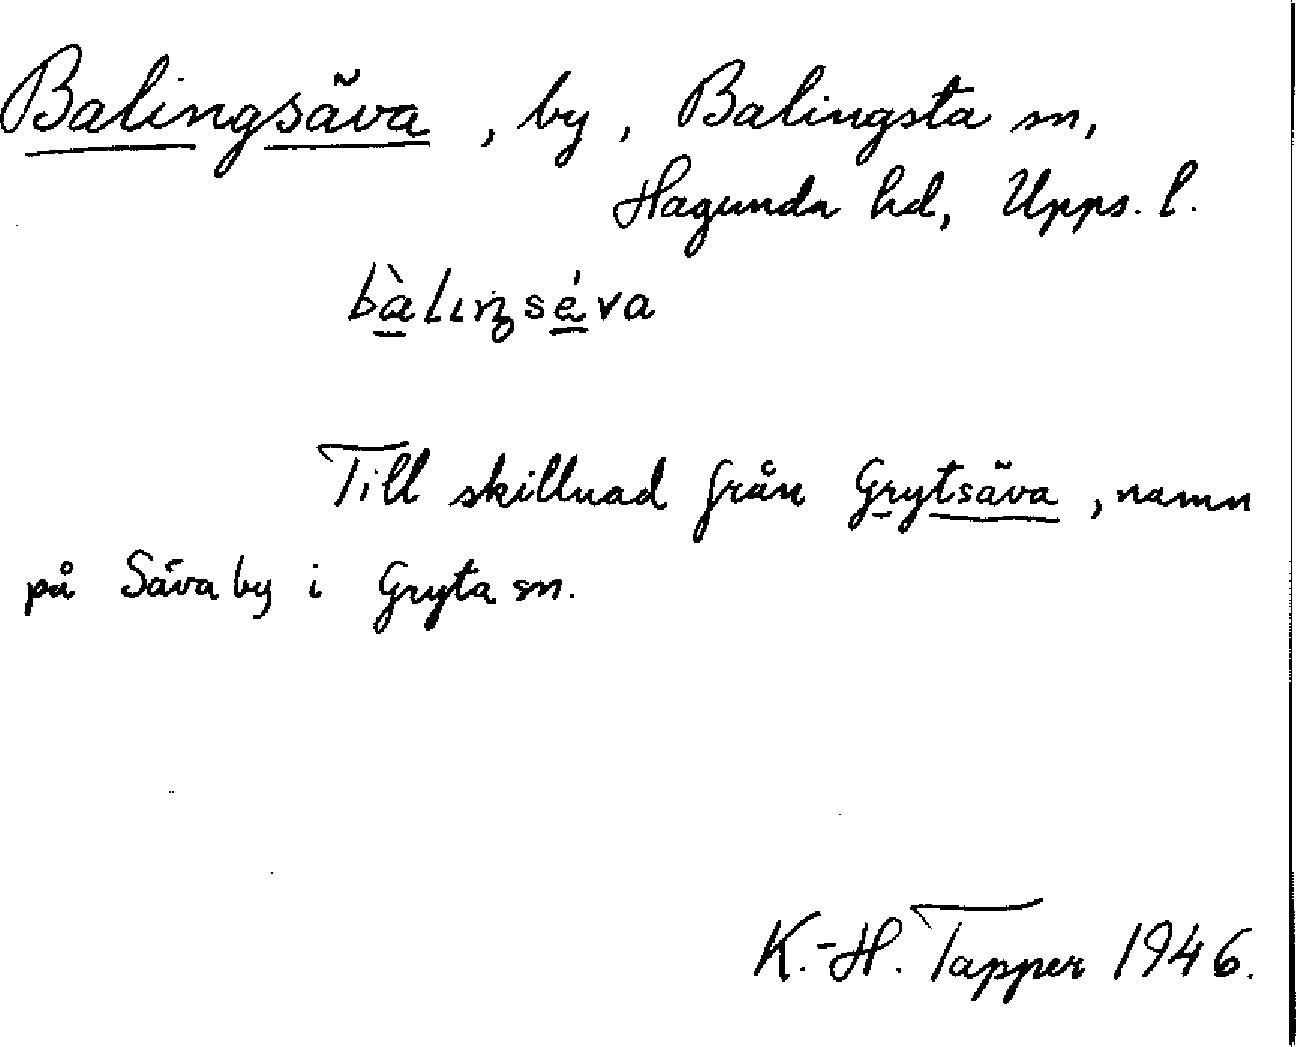 Balingsäva, by, Balingsta sn,
Hagunda hd, Upps. l.
bàlıŋséva
Till skillnad från Grytsäva, namn
på Säva by i Gryta sn.
K.-H. Tapper 1946.